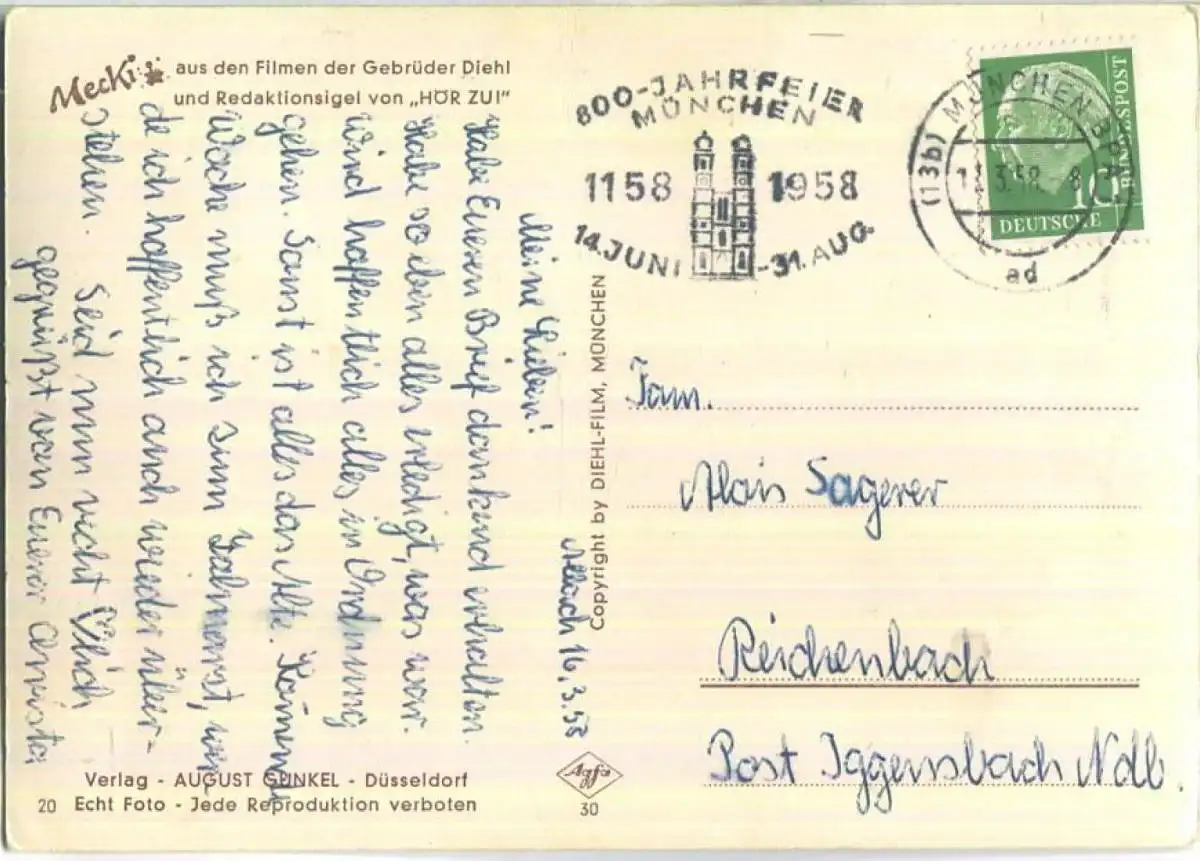 Mecki aus den Filmen der Gebrüder Diehl
und Redaktionsigel von „HÖR ZU!"
800-JAHRFEIER
MÜNCHEN
1158 1958
14. JUNI - 31. AUG.
(13b) MÜNCHEN
3.58
ad
BUNDESPOST
10
DEUTSCHE
Allach 16.3.58
Meine Lieben!
Habe Eueren Brief dankend erhalten.
Habe so eben alles erledigt, was war.
Wird hoffentlich alles in Ordnung
gehen. Sonst ist alles das Alte. Kommende
Woche muß ich zum Zahnarzt, wer-
de ich hoffentlich auch wieder über-
stehen. Seid nun recht ♡lich
gegrüßt von Euerer
Copyright by DIEHL-FILM, MÜNCHEN
Fam.
Alois Sagerer
Reichenbach
Post Iggensbach Ndb.
Verlag - AUGUST GUNKEL - Düsseldorf
20 Echt Foto - Jede Reproduktion verboten
Agfa
30